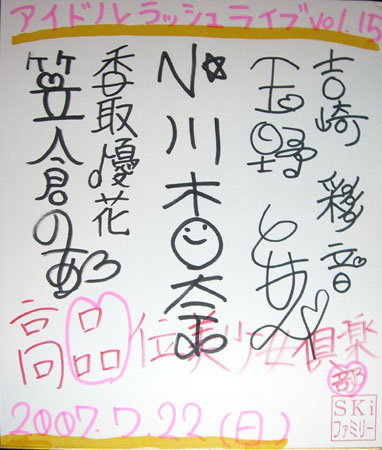 アイドルトラッシュライブvol.15
吉崎 彩音
玉野
小川杏奈
香取優花
笠倉のあ
高品位美少女倶楽部
2007.7.22(日)
SKi
ファミリー